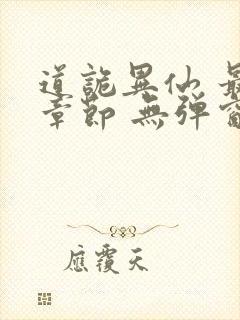 道詭異仙 最
章節 無彈窗
應覆天